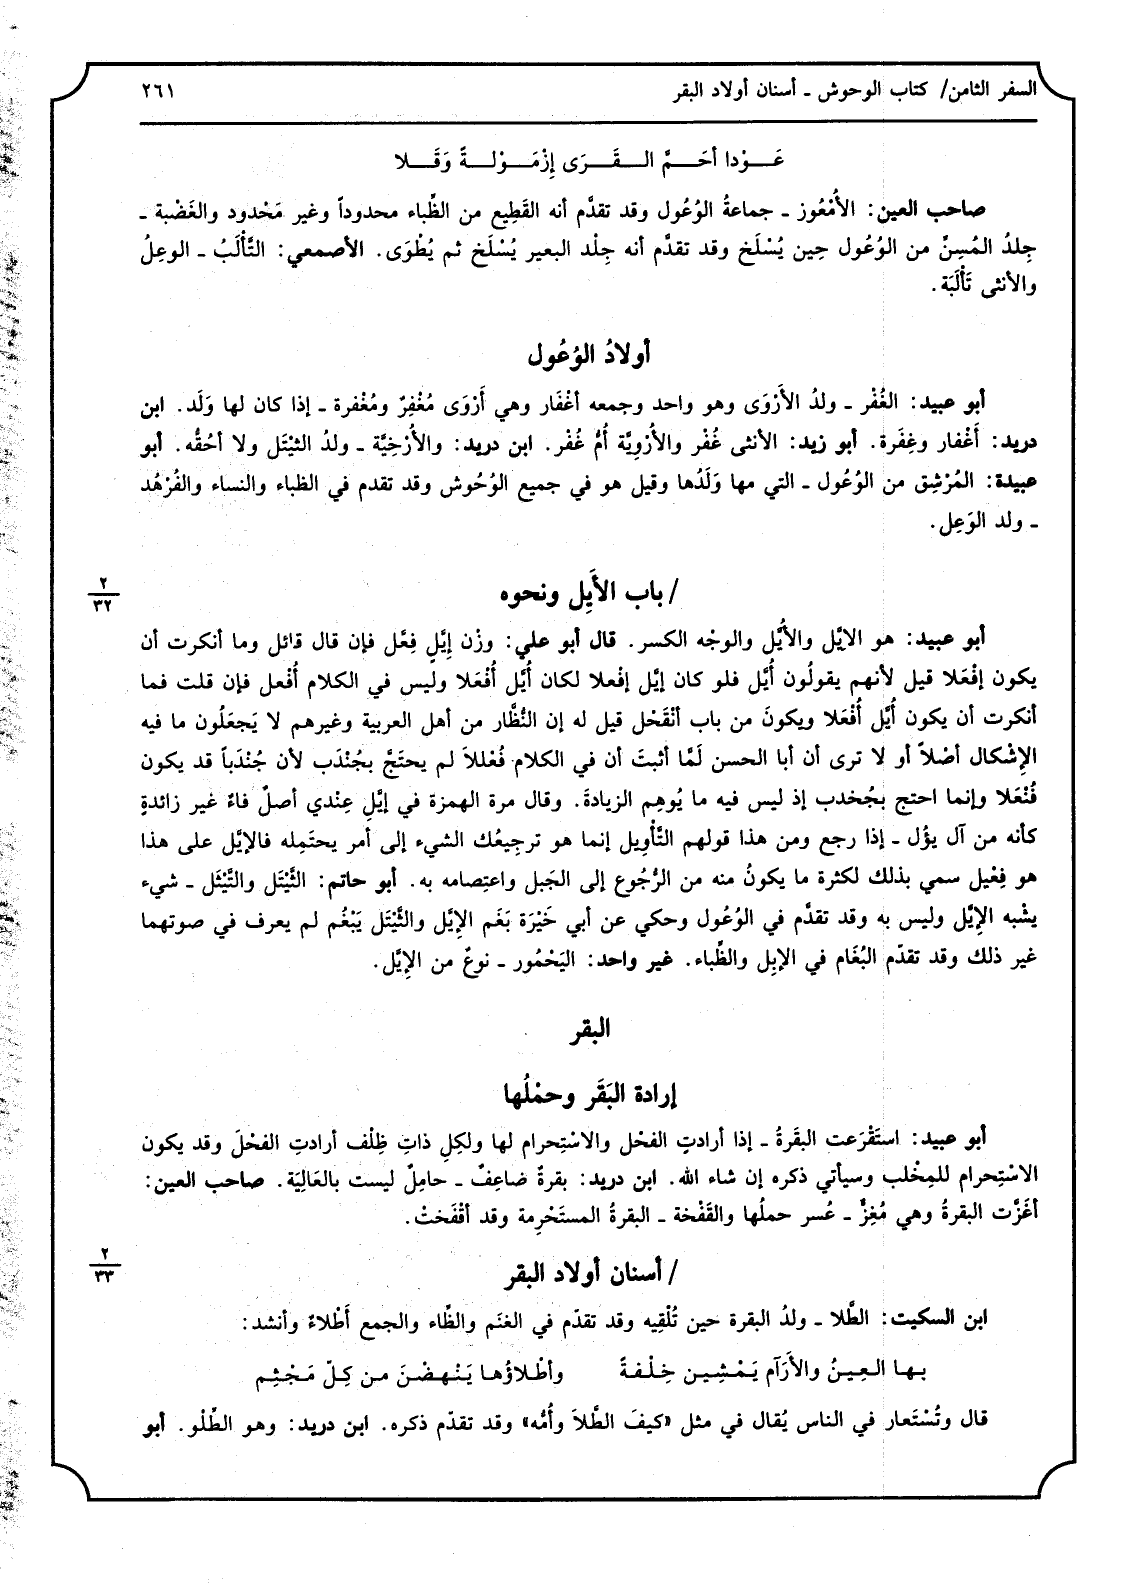 السفر الثامن/ كتاب الوحوش ـ أسنان أولاد البقر ٢٦١
عَـــوْدا أحَـــمَّ الـــقَـــرَى إزْمَـــوْلـــةً وَقَـــلا
صاحب العين: الأُمْعُوز ـ جماعةُ الوُعُول وقد تقدَّم أنه القَطِيع من الظِّباء محدوداً وغير مَحْدود والغَضْبة ـ
جِلدُ المُسِنِّ من الوُعُول حِين يُسْلَخ وقد تقدَّم أنه جِلْد البعير يُسْلَخ ثم يُطْوَى. الأصمعي: التَّأْلَبُ ـ الوعِلُ
والأنثى تَأْلَبَة.
أولادُ الوُعُول
أبو عبيد: الغُفْر ـ ولدُ الأَرْوَى وهو واحد وجمعه أغْفَار وهي أَرْوَى مُغْفِرٌ ومُغْفرة ـ إذا كان لها وَلَد. ابن
دريد: أَغْفار وغِفَرة. أبو زيد: الأنثى غُفْر والأُرْوِيَّة أُمُّ غُفْر. ابن دريد: والأُرْخِيَّة ـ ولدُ الثيْتَل ولا أحُقُّه. أبو
عبيدة: المُرْشِق من الوُعُول ـ التي مها وَلَدُها وقيل هو في جميع الوُحُوش وقد تقدم في الظباء والنساء والفُرْهُد
ـ ولد الوَعِل.
٢
٣٢
/ باب الأَيِل ونحوه
أبو عبيد: هو الايَّل والأُيَّل والوجْه الكسر. قال أبو علي: وزْن إيَّلٍ فِعَّل فإن قال قائل وما أنكرت أن
يكون إفْعَلا قيل لأنهم يقولُون أُيَّل فلو كان إيَّل إفْعلا لكان أُيَّل أُفْعَلا وليس في الكلام أُفْعل فإن قلت فما
أنكرت أن يكون أُيَّل أُفْعَلا ويكونَ من باب أنْقَحْل قيل له إن النُّظَّار من أهل العربية وغيرهم لا يَجعَلُون ما فيه
الإشْكال أصْلاً أو لا ترى أن أبا الحسن لَمَّا أثبتَ أن في الكلام فُعْللاَ لم يحتَجَّ بجُنْدَب لأن جُنْدَباً قد يكون
فُنْعَلا وإنما احتج بجُخدب إذ ليس فيه ما يُوهِم الزيادةَ. وقال مرة الهمزة في إيَّلِ عِنْدي أصلٌ فاءٌ غير زائدةٍ
كأنه من آل يؤُل ـ إذا رجع ومن هذا قولهم التَّأوِيل إنما هو ترجِيعُك الشيء إلى أمر يحتَمِله فالإيَّل على هذا
هو فِعْيل سمي بذلك لكثرة ما يكونُ منه من الرُّجُوع إلى الجَبل واعتِصامه به. أبو حاتم: الثَّيْتَل والتَّيْثَل ـ شيء
يشْبه الإيَّل وليس به وقد تقدَّم في الوُعُول وحكي عن أبي خَيْرَة بَغَم الإيَّل والثَّيْتَل يَبْغُم لم يعرف في صوتهما
غير ذلك وقد تقدّم البُغَام في الإبِل والظِّباء. غير واحد: اليَحْمُور ـ نوعٌ من الإيَّل.
البقر
إرادة البَقَر وحمْلُها
أبو عبيد: استَقْرَعت البقَرةُ ـ إذا أرادتِ الفحْل والاسْتِحرام لها ولكلِ ذاتِ ظِلْف أرادتِ الفحْلَ وقد يكون
الاسْتِحرام للمِخْلب وسيأتي ذكره إن شاء الله. ابن دريد: بقرةٌ ضاعِفٌ ـ حامِلٌ ليست بالعَالِيَة. صاحب العين:
أغَزَّت البقرةُ وهي مُغِزٌّ ـ عُسر حملُها والقَفْخة ـ البقرةُ المستَحْرِمة وقد أقْفَختْ.
٢
٣٣
/ أسنان أولاد البقر
ابن السكيت: الطَّلا ـ ولدُ البقرة حين تُلْقِيه وقد تقدّم في الغنَم والظِّاء والجمع أَطْلاءٌ وأنشد:
بـهـا الـعِـينُ والأَرَآم يَـمْشِـين خِـلْـفـةً وأطْـلاؤُهـا يَـنْـهـضْـنَ مـن كِـلّ مَـجْـثِـم
قال وتُسْتَعار في الناس يُقال في مثل «كيفَ الطَّلاَ وأُمُّه» وقد تقدّم ذكره. ابن دريد: وهو الطِّلْو. أبو